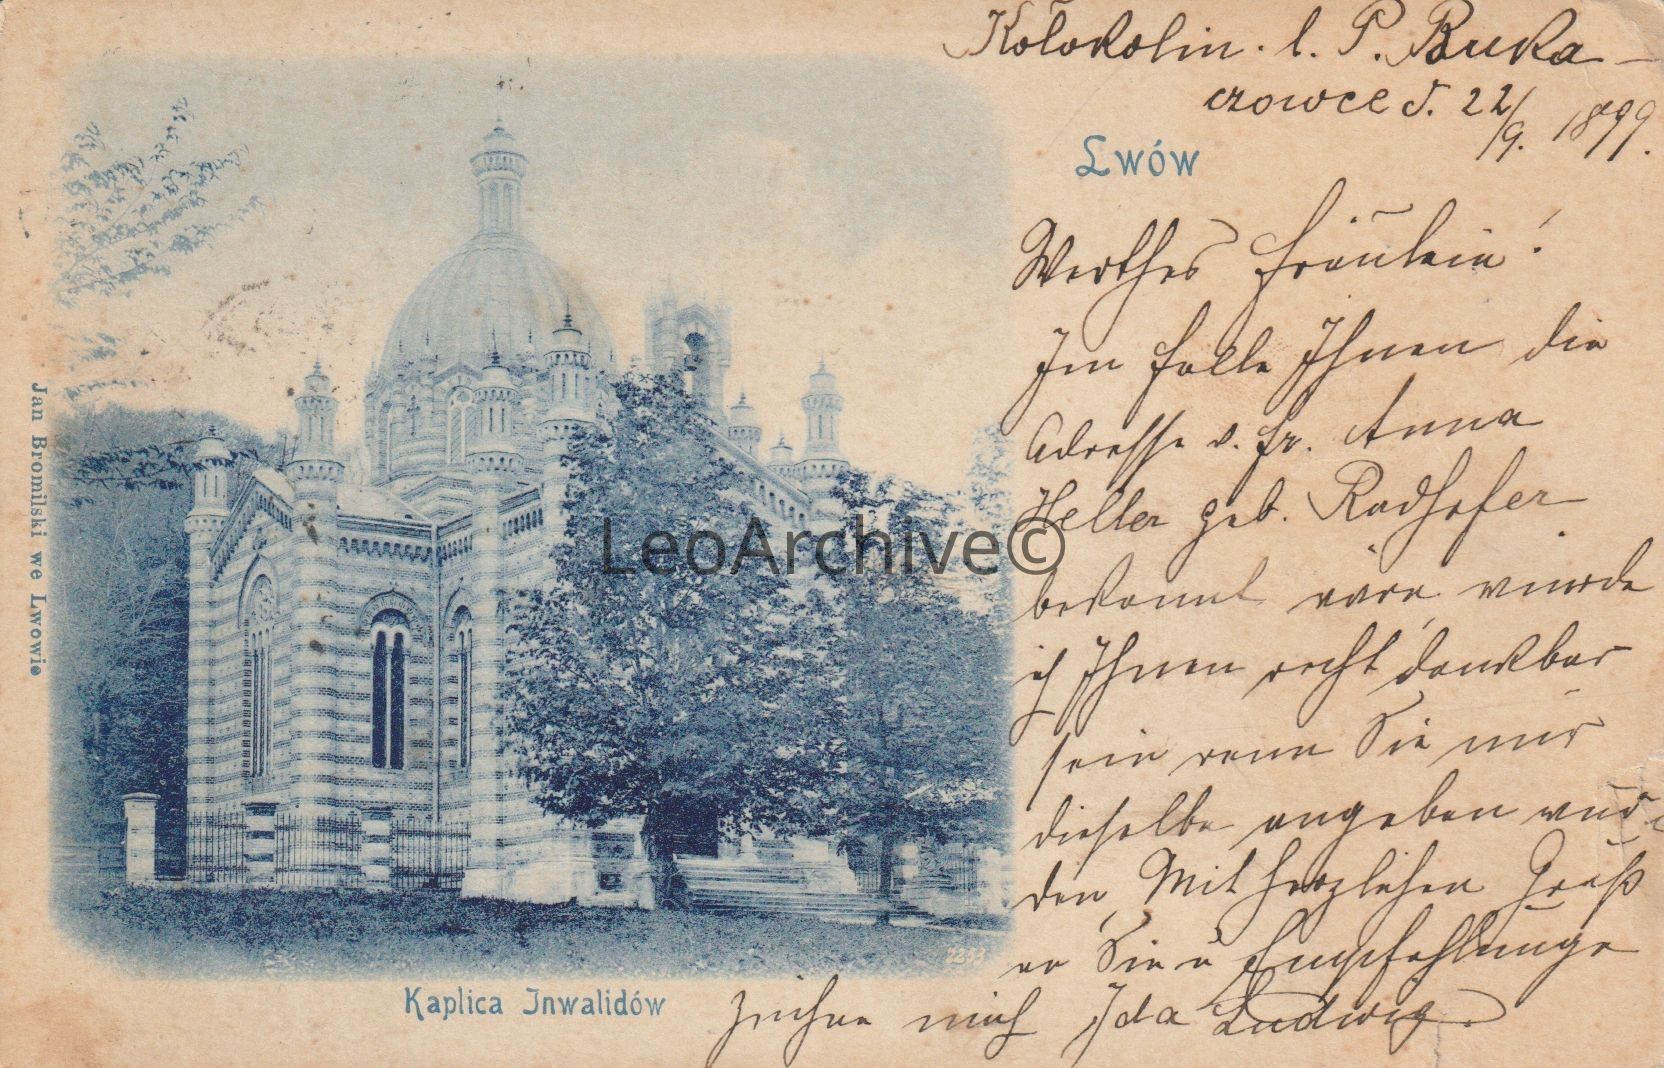 Kołokolin. l. P. Buka-
czowce d. 22/9. 1899.
Lwów
Werthes Fräulein!
Im falle Ihnen die
Adresse v. Fr. Anna
Heller geb. Radhofer
bekannt wäre wurde
ich Ihnen recht dankbar
sein wenn Sie mir
dieselbe angeben wür
den, Mit herzlichen Gruß
an Sie u Empfehlunge
zeichne mich Ida Ludwig
Jan Bromilski we Lwowie
LeoArchive©
Kaplica Inwalidów